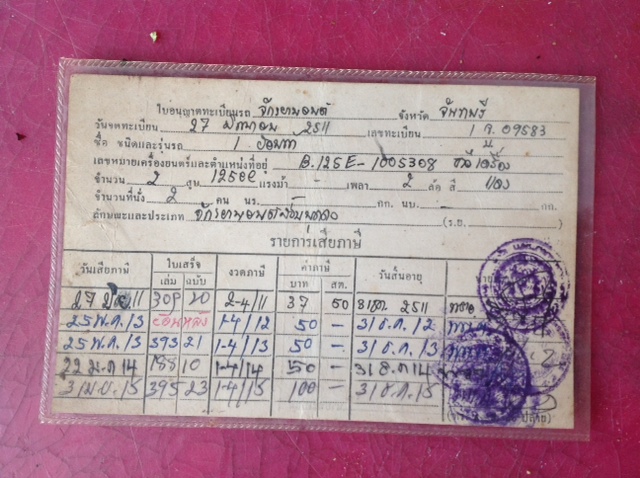 ใบอนุญาตทะเบียนรถ จักรยานยนต์ จังหวัด จันทบุรี
วันจดทะเบียน 27 2511 เลขทะเบียน 1 จ. 09583
ชื่อ ชนิดและรุ่นรถ
เลขหมายเครื่องยนต์และตำแหน่งที่อยู่ B.125E-1005308
จำนวน 2 สูบ 125 แรงม้า เพลา 2 ล้อ สี แดง
จำนวนที่นั่ง 2 คน นร. กก. นบ. กก.
ลักษณะและประเภท จักรยานยนต์ส่วนบุคคล (ร.ย. )
รายการเสียภาษี
วันเสียภาษี ใบเสร็จ งวดภาษี ค่าภาษี วันสิ้นอายุ
เล่ม ฉบับ บาท สต.
27 11 309 20 2-4/11 37 50 31 ธค. 2511
25 พ.ค. 13 ย้อนหลัง 1-4/12 50 - 31 ธ.ค. 12
25 พ.ค. 13 393 21 1-4/13 50 - 31 ธ.ค. 13
22 ม.ค 14 188 10 1-4/14 50 - 31 ธ.ค 14
3 เม.ย. 15 395 23 1-4/15 100 - 31 ธ.ค. 15